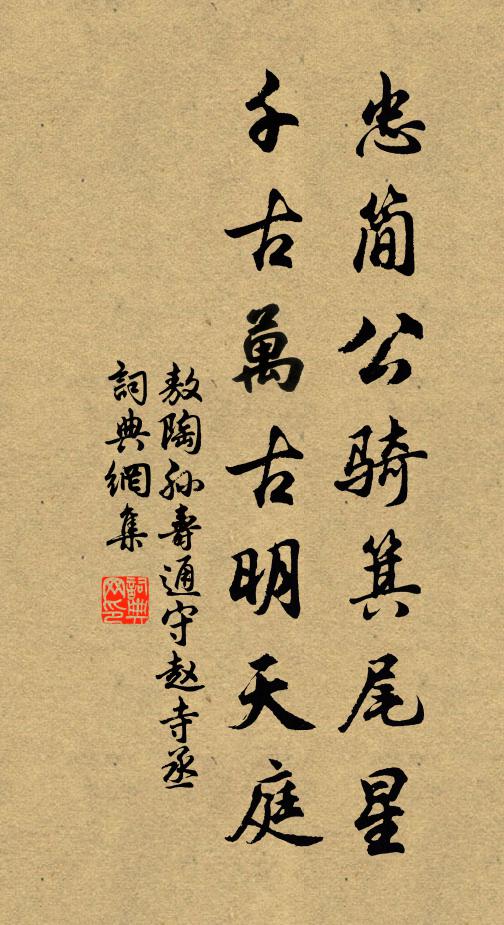 忠简公骑箕尾星
千古萬古明天庭
敖陶孙壽通守赵寺丞
詞典網集
詞典网印